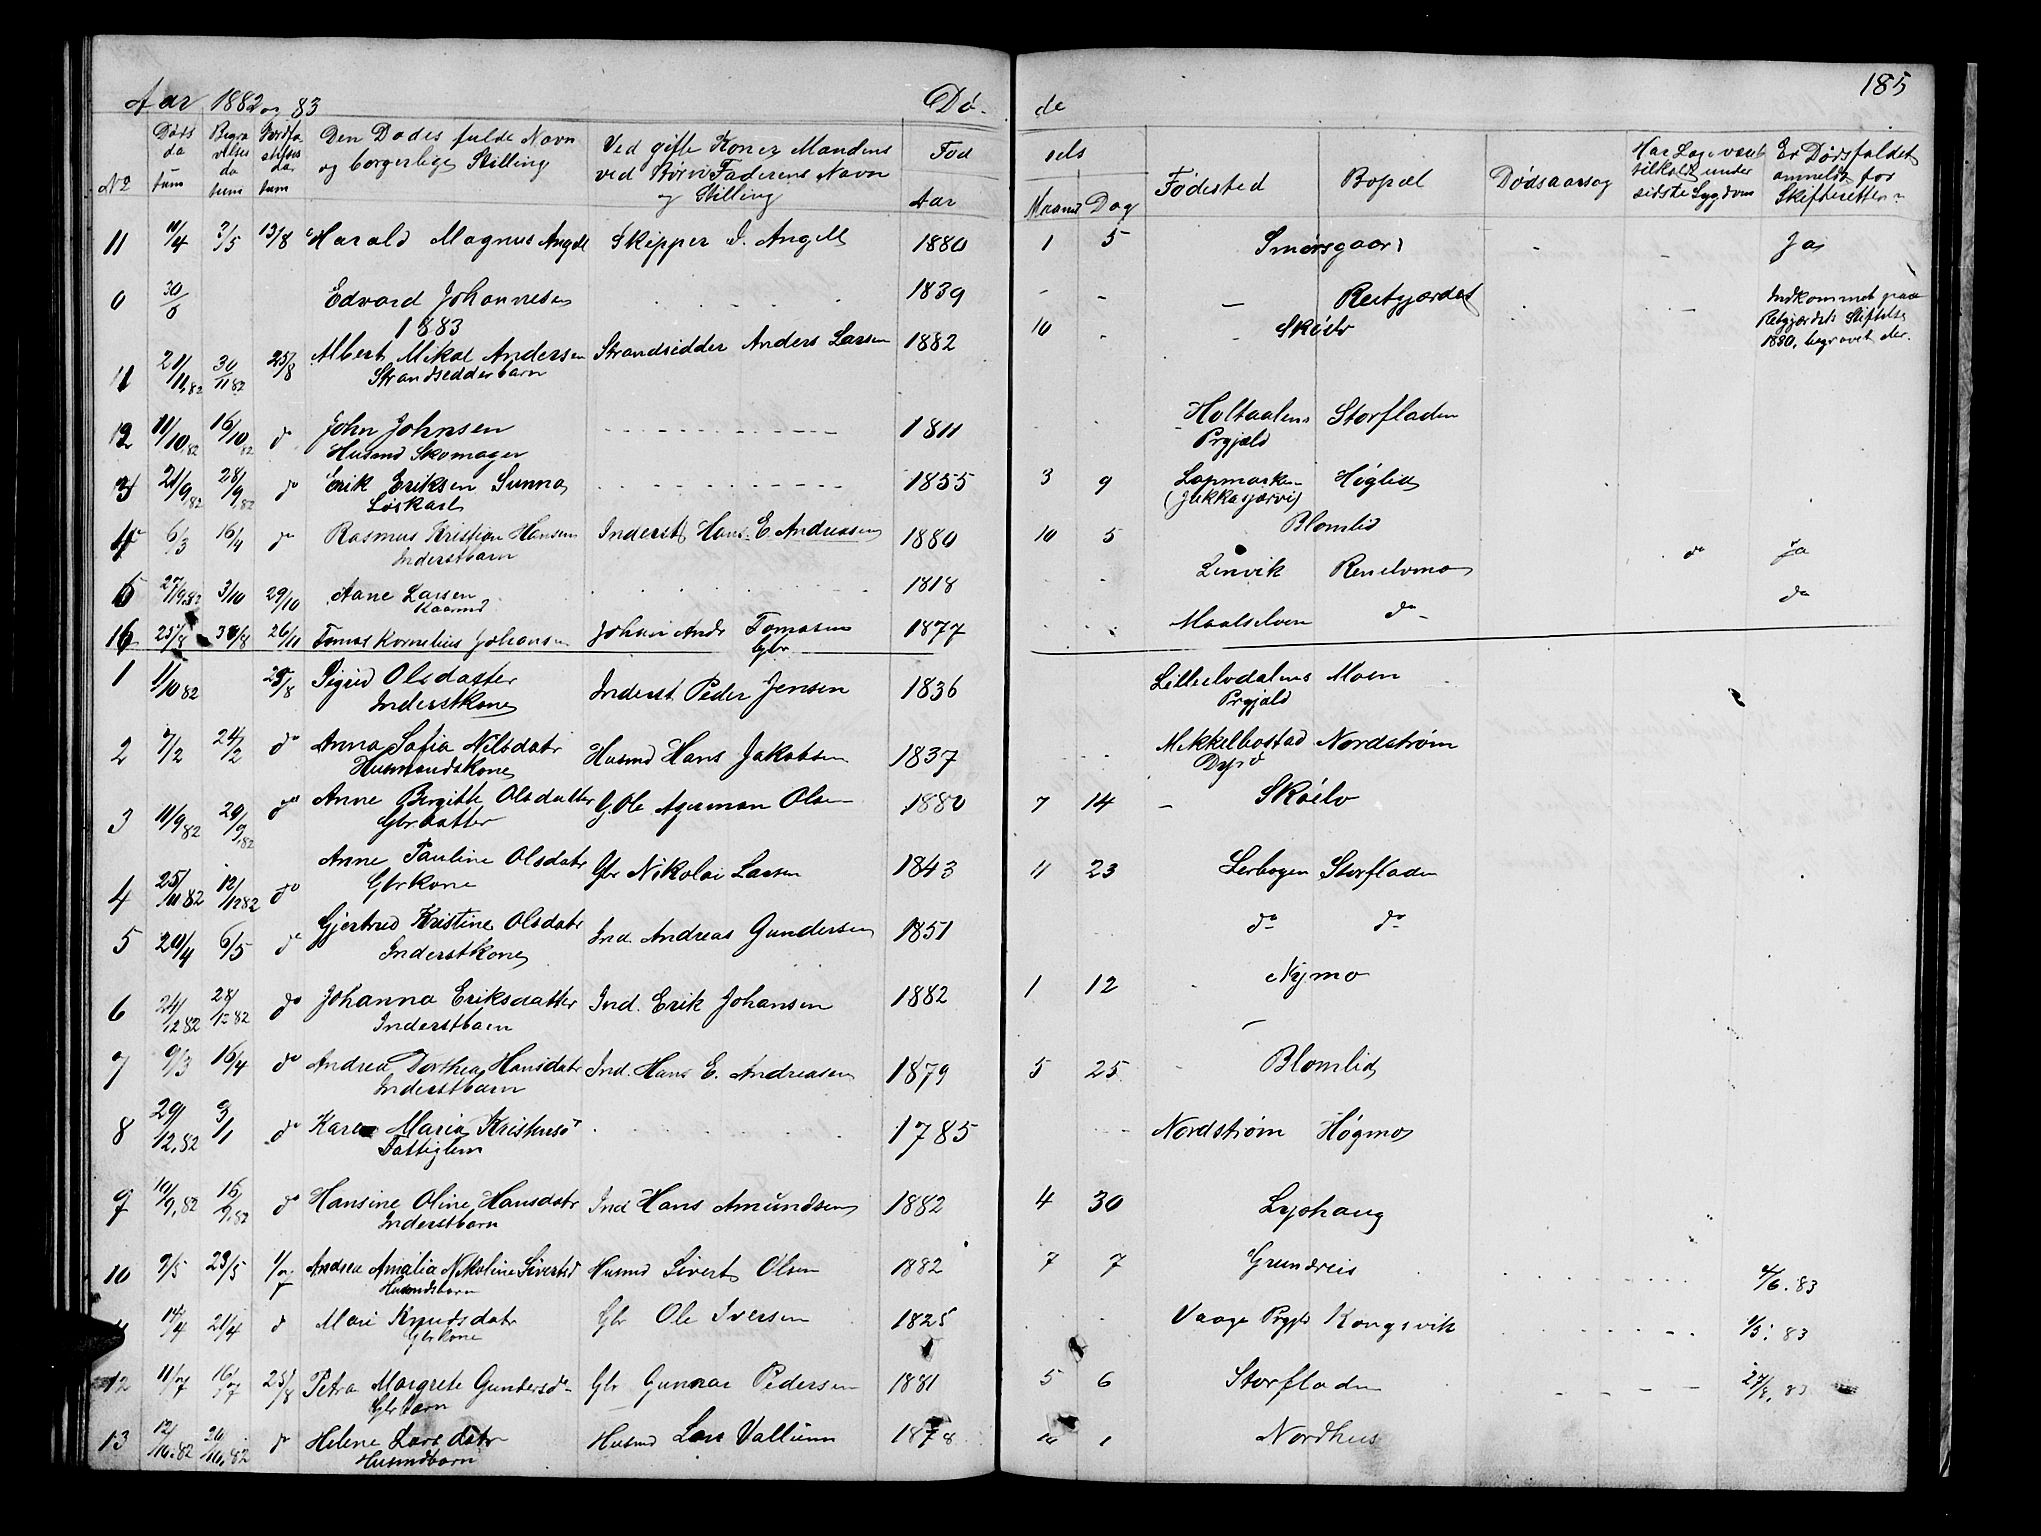 185
Aar 1882 og 83 Dø- de
No Døds da tum Begra velses da tum Jordfæ stelses da tum Den Dødes fulde Navn og borgerlige Stilling Ved gifte Koner Mandens ved Børn Faderens Navn og Stilling Fød sels Aar Maaned Dag Fødested Bopæl Dødsaarsag Har Læge været tilkaldt under sidste Sygdom Er Dødsfaldet anmeldt for Skifteretten
11 11/4 3/5 13/8 Harald Magnus Angell Skipper J. Angell 1880 1 5 Smørsgaard - - Ja
0 30/6 Edvard Johannesen 1839 - - - Reitgjerdet Indkommet paa
Reitgjærdets Stiftelse
1880, begravet der.
1883
11 21/11,82 30/11 82 25/8 Albert Mikal Andersen Strandsidder Anders Larsen 1882 10 - Skøelv
Strandsedderbarn
12 11/10 82 16/10 82 do John Johnsen 1811 Holtaalens Storfladen
Husmd Skomager Prgjæld
13 21/9 82 28/9 82 do Erik Eriksen Sunna 1855 3 9 Lapmarken Høglid
Løskarl (Jukkasjærvi)
6/3 16/4 do Rasmus Kristian Hansen Inderst Hans E. Andreasen 1880 10 5 Blomlid
Inderstbarn
27/9,82 3/10 29/10 Aane Larsen 1818 Lenvik Renelvmo do Ja
Kaarmd
16 25/8 30/8 26/10 Tomas Kornelius Johansen Johan Andr Tomasen 1877 Maalselven do do
Gbr
1 1/10 82 25/8 Sigrid Olsdatter Inderst Peder Jensen 1836 Lilleelvdalens Moen
Inderstkone Prgjæld
2 7/2 24/2 do Anna Sofia Nilsdatr Husmd Hans Jakobsen 1837 Mikkelbostad Nordstrøm
Husmandskone Dyrø
3 11/9 82 29/9 82 do Anne Birgitte Olsdatter G. Ole Agerman Olsen 1880 7 14 - Skøelv
Gbrdatter
4 25/11 82 12/12 82 do Anne Pauline Olsdatr Gbr Nikolai Larsen 1843 11 23 Lerbogen Storfladen
Gbrkone
5 20/4 6/5 do Gjertrud Kristine Olsdatr Ind. Andreas Gundersen 1851 do do
Inderstkone
6 24/12 82 28/12 82 do Johanna Eriksdatter Ind. Erik Johansen 1882 1 12 Nymo
Inderstbarn
7 9/3 16/4 do Andrea Dorthea Hansdatr Ind. Hans E. Andreasen 1879 5 25 Blomlid
Inderstbarn
8 29/12,82 3/1 do Karen Maria Kristensd 1785 Nordstrøm Høgmo
Fattiglem
9 10/9,82 16/9,82 do Hansine Oline Hansdatr Ind Hans Amundsen 1882 4 30 Lyshaug
Inderstbarn
10 9/5 23/5 1/7 Andrea Amalia Nikoline Sivertsd Husmd Sivert Olsen 1882 7 7 Grundreis 4/6. 83
Husmdsbarn
14/4 21/4 do Mari Knudsdatr Gbr Ole Iversen 1825 Vaage Prgjld Kongsvik 83
Gbrkone
12 11/7 16/7 25/8 Petra Margrete Gundersd Gbr Gunnar Pedersen 1881 5 6 Storfladen 27/8. 83
Gbrbarn
13 12/10.82 20/10.82 do Helene Larsdatr Husmd Lars Vallin 1878 1 Nordhus
Husmdbarn